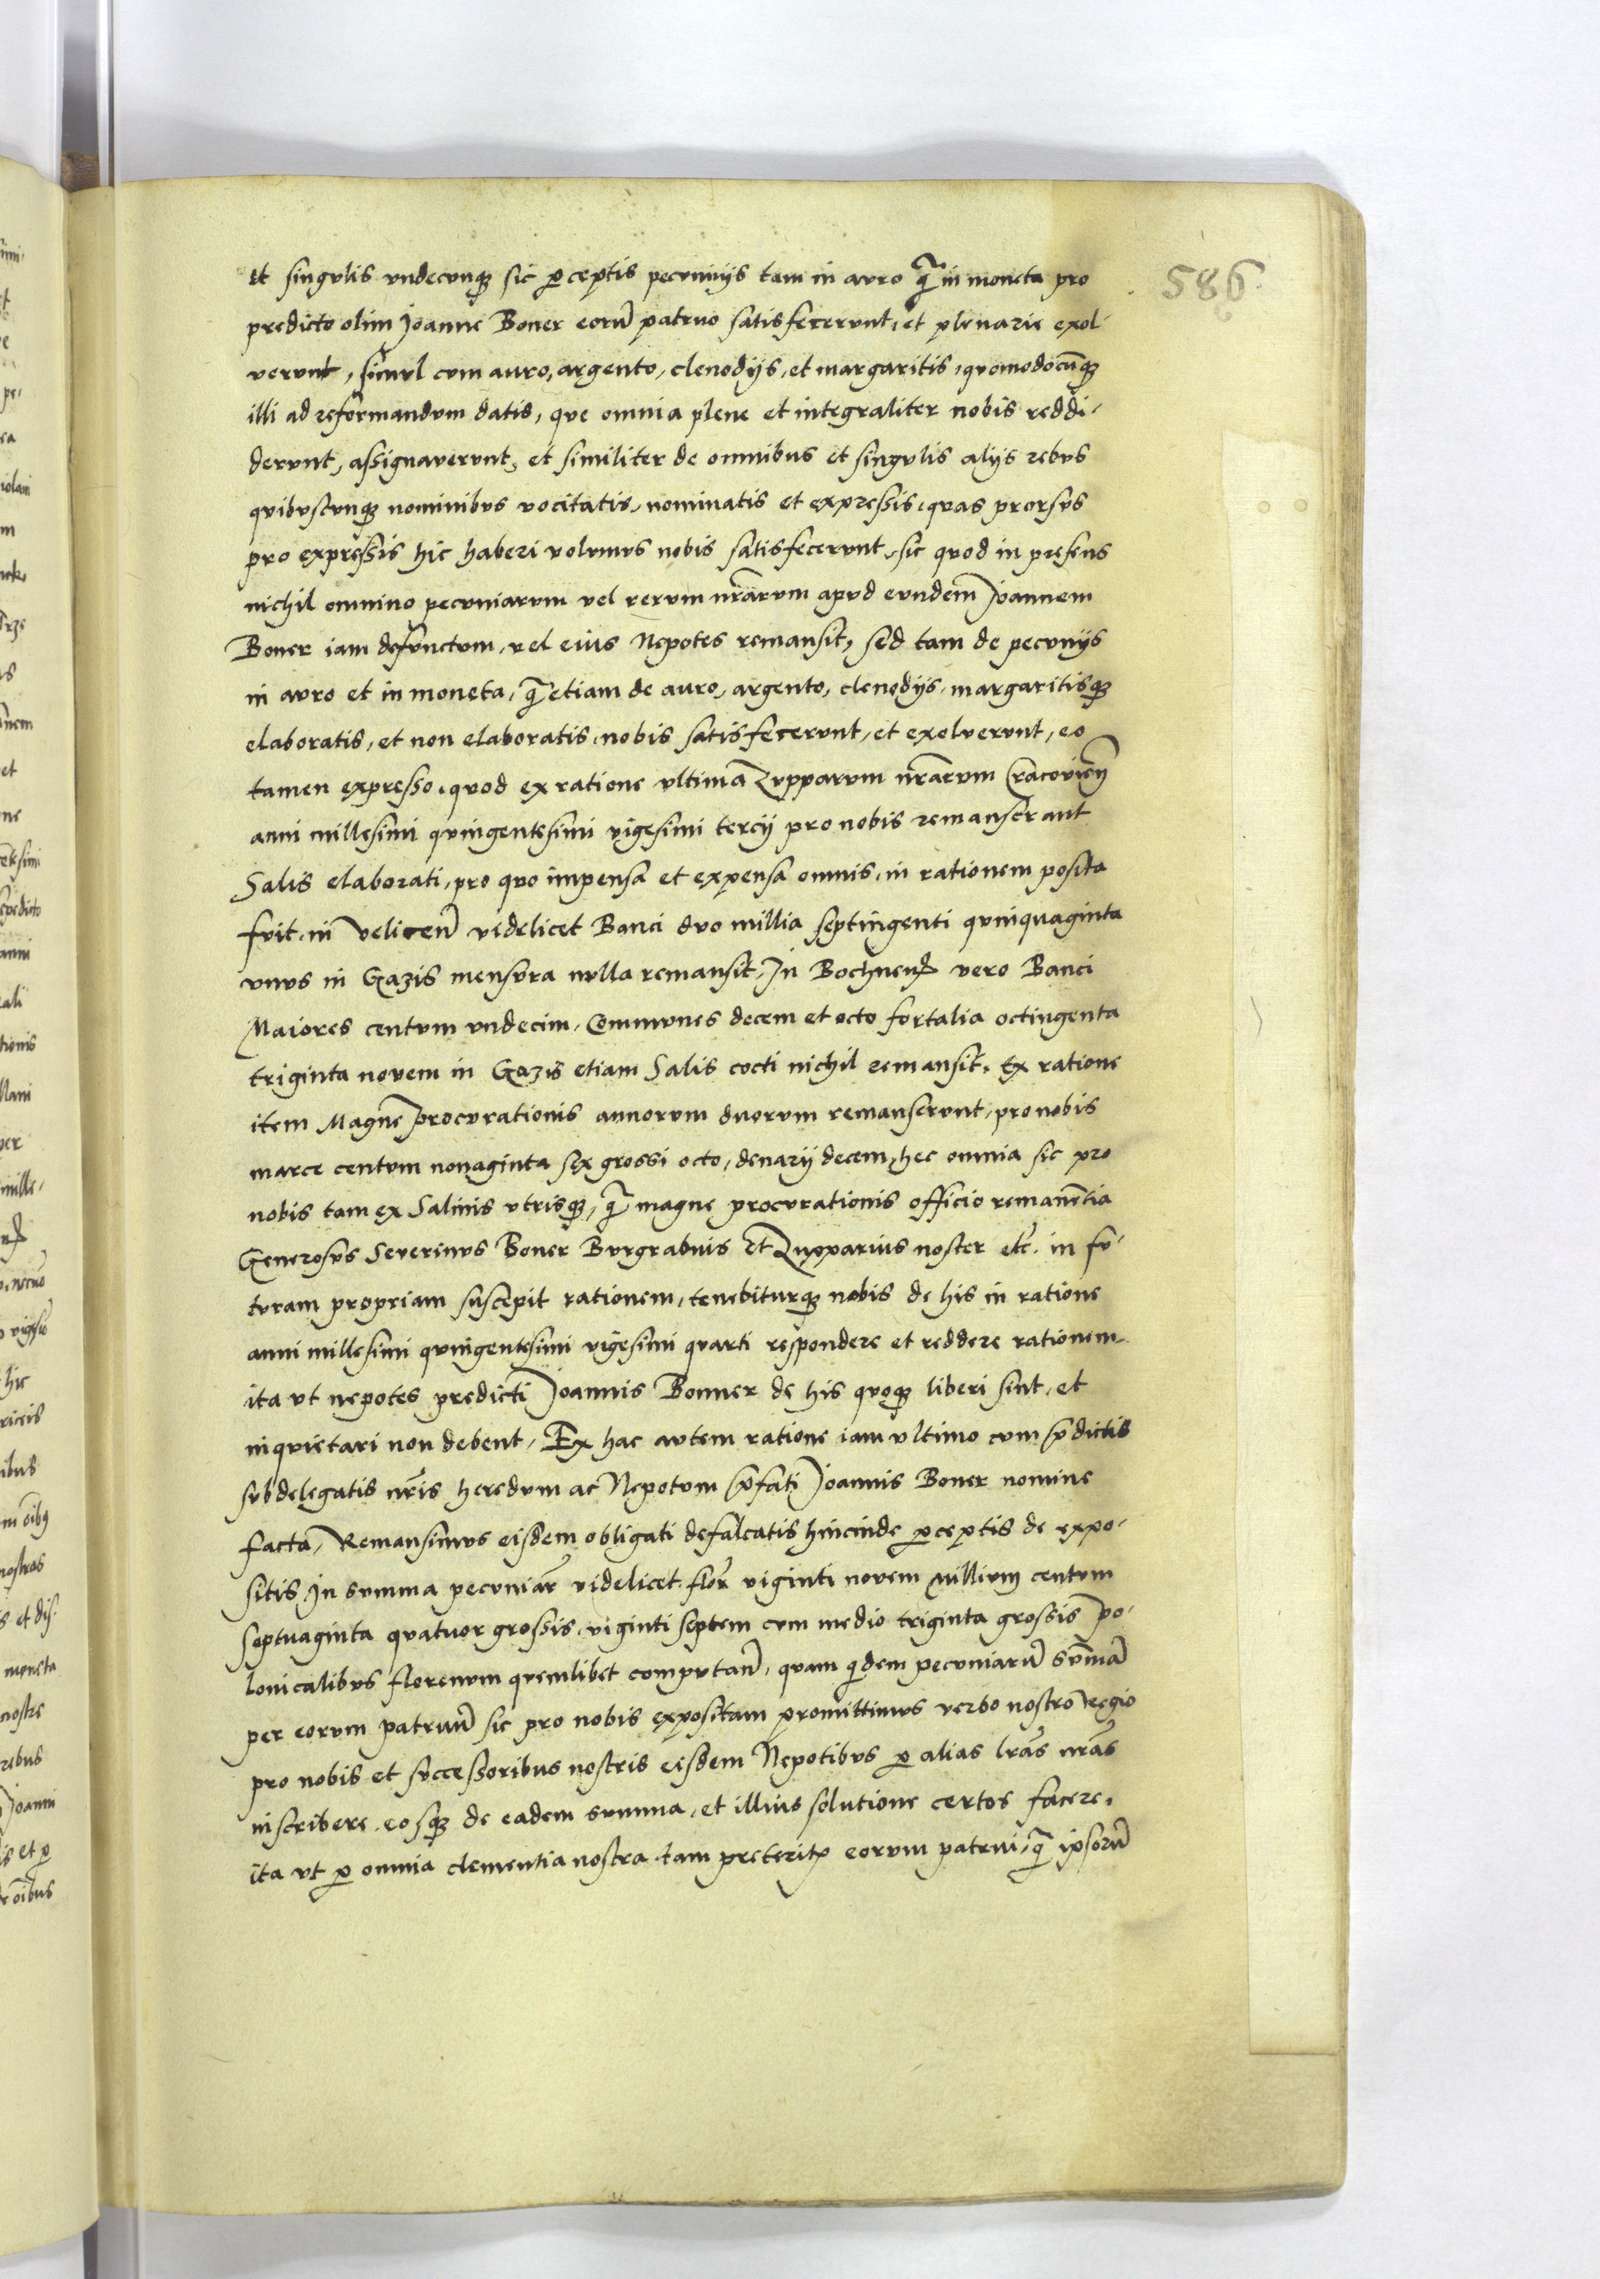 586
et singulis undecunq3 sic perceptis pecuniis tam in auro q̃ in moneta pro
predicto olim Joanne Boner eorũ patruo satisfecerunt, et plenarie exol-
verunt, simul cum auro, argento, clenodijs, et margaritis, quomodocũq3
illi ad reformandum datis, que omnia plene et integraliter nobis reddi-
derunt, assignaverunt, et similiter de omnibus et singulis alijs rebus
quibuscunq3 nominibus vocitatis, nominatis et expressis, quas prorsus
pro expressis hic haberi volumus nobis satisfecerunt, sic quod in presens
nichil omnino pecuniarum vel rerum nr̃arum apud eundem Joannem
Boner iam defunctum, vel eius Nepotes remansit, sed tam de pecunijs
in auro et in moneta, q̃ etiam de auro, argento, clenodijs, margaritisq3
elaboratis, et non elaboratis, nobis satisfecerunt, et exolverunt, eo
tamen expresso, quod ex ratione ultima Zupparum nr̃arum Cracovieñ
anni millesimi quingentesimi vigesimi tercij pro nobis remanserant
Salis elaborati, pro quo impensa et expensa omnis, in rationem posita
fuit, in Veliceñ videlicet Banci duo millia septingenti quinquaginta
unus in Gazis mensura nulla remansit, In Bochnens̃ vero Banci
Maiores centum undecim, Communes decem et octo fortalia octingenta
triginta novem in Gazis etiam Salis cocti nichil remansit. Ex ratione
item Magne procurationis annorum duorum remanserunt, pro nobis
marce centum nonaginta sex grossi octo, denarij decem, hec omnia sic pro
nobis tam ex Salinis utrisq3, q̃ magne procurationis officio remanẽtia
Generosus Severinus Boner Burgrabius et Zupparius noster etc̃. in fu-
turam propriam suscepit rationem, tenebiturq3 nobis de his in ratione
anni millesimi quingentesimi vigesimi quarti respondere et reddere rationem
ita ut nepotes predicti Joannis Bonner de his quoq3 liberi sint, et
inquietari non debent, Ex hac autem ratione iam ultimo cum p̃dictis
subdelegatis nr̃is heredum ac Nepotum p̃fati Joannis Boner nomine
facta, Remansimus eisdem obligati defalcatis hincinde perceptis de expo-
sitis in summa pecuniar̃ videlicet flor̃ viginti novem millium centum
septuaginta quatuor grossis, viginti septem cum medio triginta grossis Po-
lonicalibus florenum quemlibet computañ, quam q̃dem pecuniarũ sũmã
per eorum patruũ sic pro nobis expositam promittimus verbo nostro regio
pro nobis et successoribus nostris eisdem Nepotibus per alias lr̃as nr̃as
inscribere, eosq3 de eadem summa, et illius solutione certos facere,
ita ut per omnia clementia nostra tam preterito eorum patrui, q̃ ipsorũ